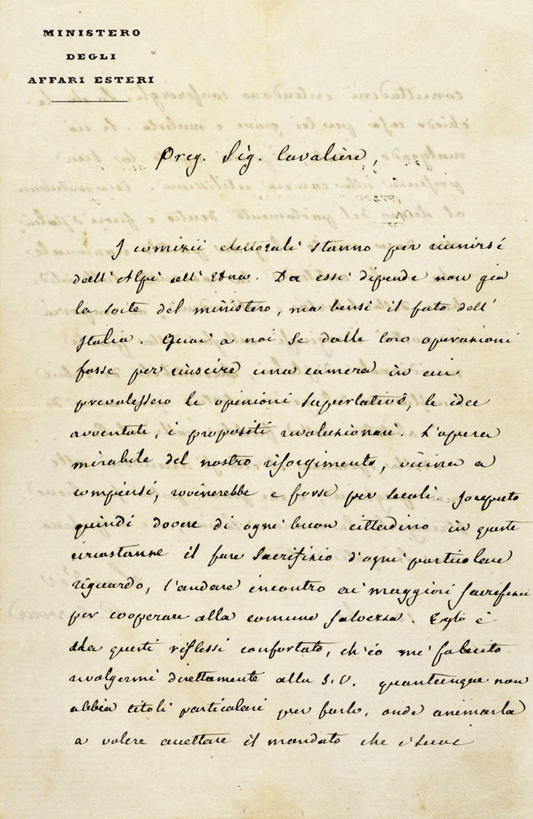 MINISTERO
DEGLI
AFFARI ESTERI
Preg. Sig. Cavaliere,
I comizii elettorali stanno per riunirsi
dall'Alpi all'Etna. Da essi dipende non già
la sorte del ministero, ma bensì il fato dell'
Italia. Guai a noi se dalle loro operazioni
fosse per riuscire una camera in cui
prevalessero le opinioni superlative, le idee
avventate, i propositi rivoluzionari. L'opera
mirabile del nostro risorgimento, vicina a
compiersi, rovinerebbe e forse per secoli.
quindi dovere di ogni buon cittadino in queste
circostanze il fare sacrifizio d'ogni particolare
riguardo, l'andare incontro ai maggiori sacrifizii
per cooperare alla comune salvezza. Egli è
da questi riflessi confortato, ch'io mi fo lecito
rivolgermi direttamente alla S.V. quantunque non
abbia titoli particolari per farlo, onde animarla
a volere accettare il mandato che i suoi